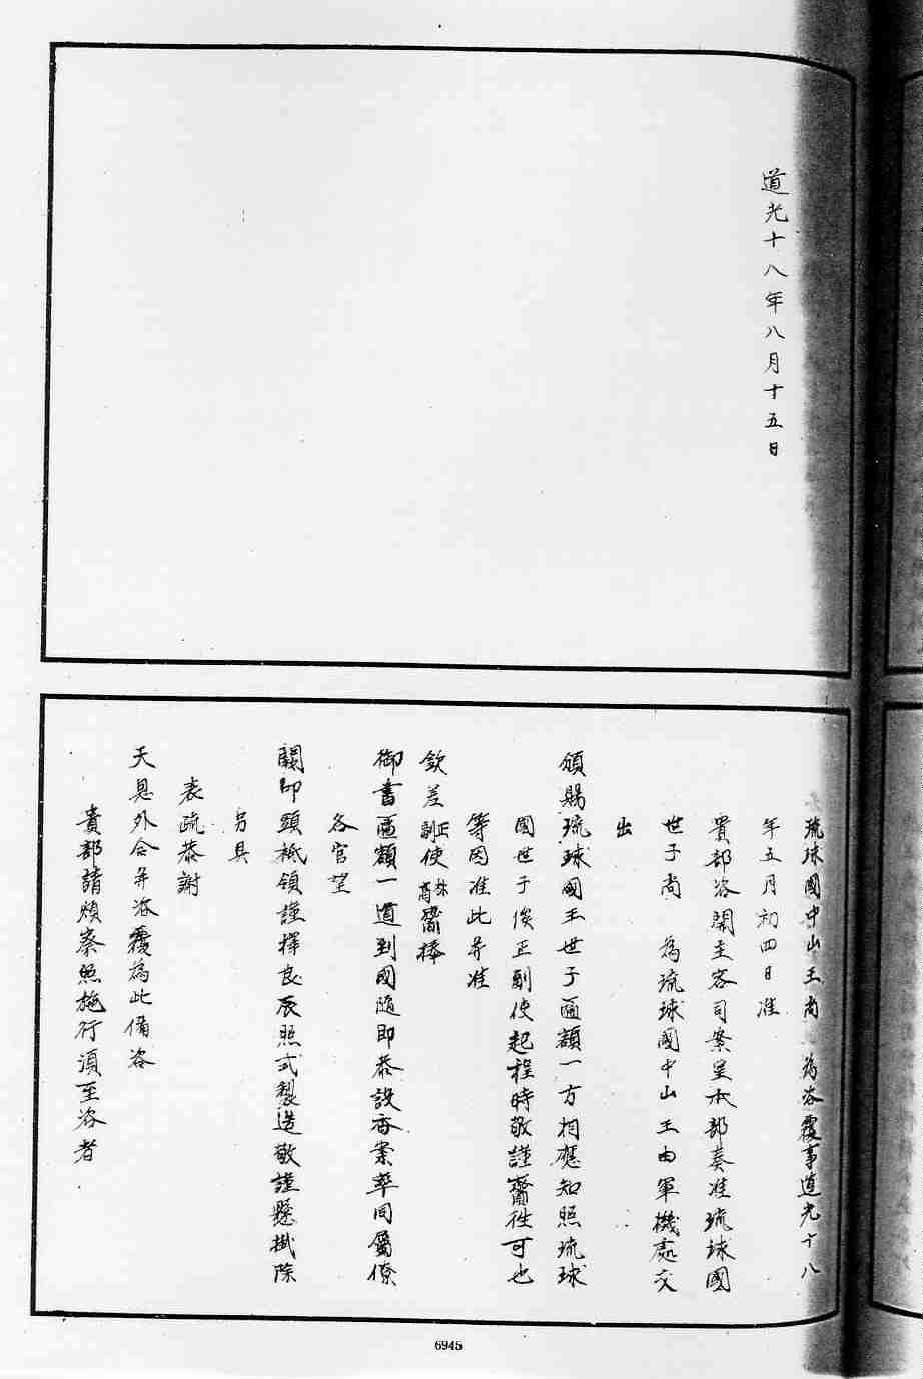 道光十八年八月十五日
琉球國中山王尚 為咨覆事道光十八
年五月初四日准
貴部咨開主客司案呈本部奏准琉球國
世子尚 為琉球國中山王由軍機處交
出
頒賜琉球國王世子匾額一方相應知照琉球
國世子俟正副使起程時敬謹齎往可也
等因准此并准
欽差正副使林高齎捧
御書匾額一道到國隨即恭設香案率同屬僚
各官望
闕叩頭祗領謹擇良辰照式製造敬謹懸掛除
另具
表疏恭謝
天恩外合并咨覆為此備咨
貴部請煩察照施行須至咨者
6945